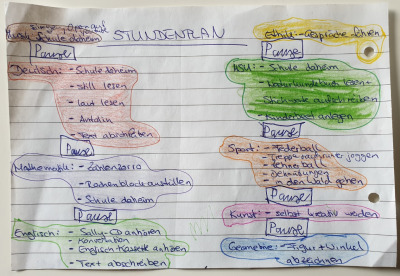 STUNDENPLAN
Musik: Schule daheim
Pause
Deutsch: - Schule daheim
- still lesen
- laut lesen
- Antolin
- Text abschreiben
Pause
Mathematik: - Zahlenzorro
- Rechenblock ausfüllen
- Schule daheim
Pause
Englisch: - Sally-CD anhören
- Englisch Kassette anhören
- Text abschreiben
Ethik: - Gespräche führen
Pause
HSU: - Schule daheim
- Naturkundebuch lesen +
Stichworte aufschreiben
- Kinderbeet anlegen
Pause
Sport: - Federball
- Treppe rauf/runter joggen
- Dehnübungen
- in den Wald gehen
Pause
Kunst: - selbst kreativ werden
Pause
Geometrie: - Figur + Winkel
abzeichnen